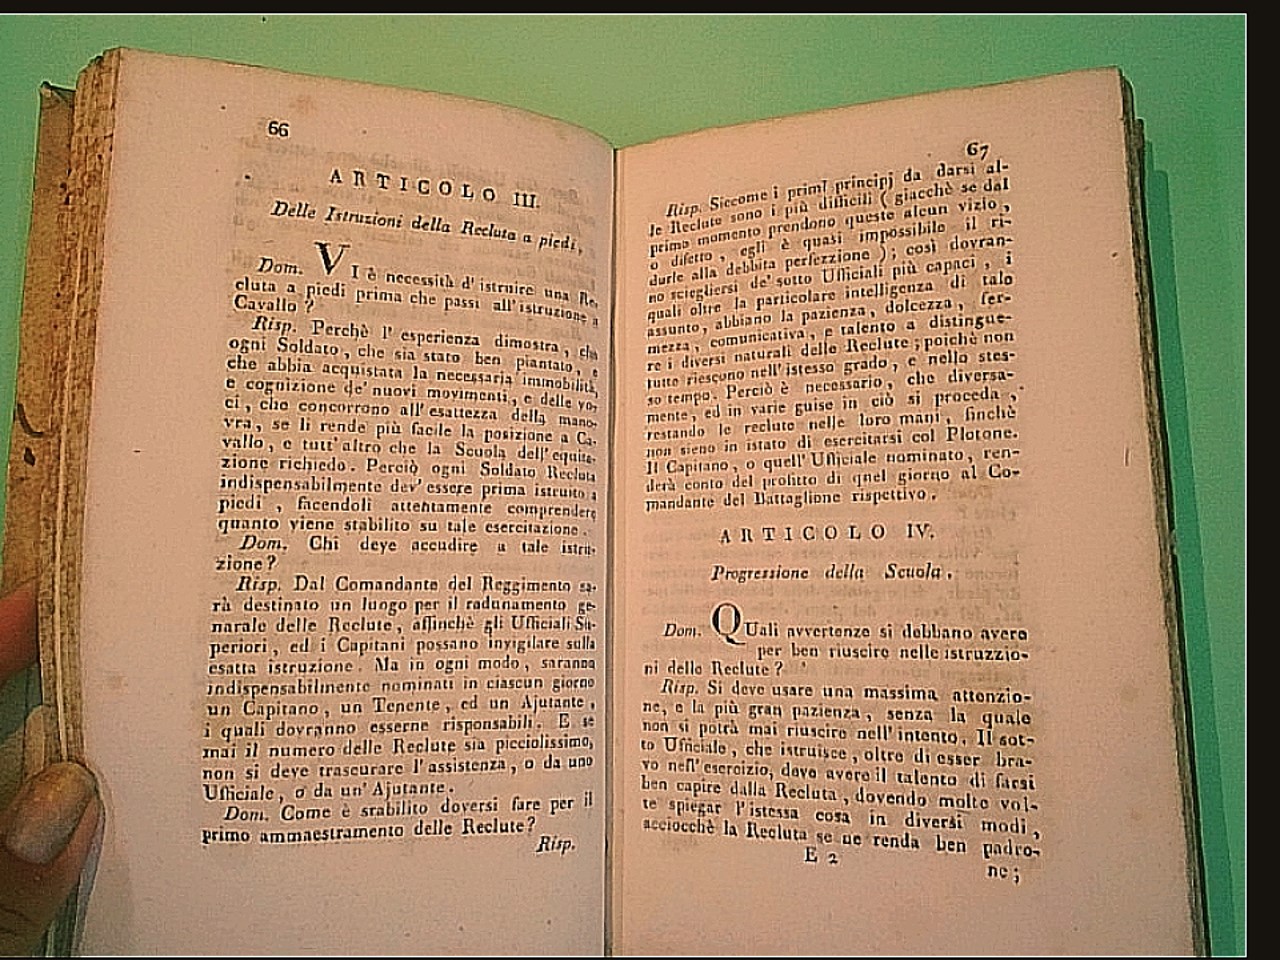 66
ARTICOLO III.
Delle Istruzioni della Recluta a piedi,
Dom. VI è necessità d' istruire una Re-
cluta a piedi prima che passi all' istruzione a
Cavallo ?
Risp. Perchè l' esperienza dimostra, che
ogni Soldato, che sia stato ben piantato, e
che abbia acquistata la necessaria immobilità,
e cognizione de' nuovi movimenti, e delle vo-
ci, che concorrono all' esattezza della mano-
vra, se li rende più facile la posizione a Ca-
vallo, e tutt' altro che la Scuola dell' equita-
zione richiede. Perciò ogni Soldato Recluta
indispensabilmente dev' essere prima istruito a
piedi, facendoli attentamente comprendere
quanto viene stabilito su tale esercitazione.
Dom. Chi deve accudire a tale istru-
zione?
Risp. Dal Comandante del Reggimento sa-
rà destinato un luogo per il radunamento ge-
narale delle Reclute, affinchè gli Ufficiali Su-
periori, ed i Capitani possano invigilare sulla
esatta istruzione. Ma in ogni modo, saranno
indispensabilmente nominati in ciascun giorno
un Capitano, un Tenente, ed un Ajutante,
i quali dovranno esserne risponsabili. E se
mai il numero delle Reclute sia picciolissimo,
non si deve trascurare l' assistenza, o da uno
Ufficiale, o da un' Ajutante.
Dom. Come è srabilito doversi fare per il
primo ammaestramento delle Reclute?
Risp.
67
Risp. Siccome i primi principj da darsi al-
le Reclute sono i più difficili ( giacchè se dal
primo momento prendono queste alcun vizio,
o difetto, egli è quasi impossibile il ri-
durle alla debbita perfezzione ); così dovran-
no sciegliersi de' sotto Ufficiali più capaci, i
quali oltre la particolare intelligenza di talo
assunto, abbiano la pazienza, dolcezza, fer-
mezza, comunicativa, e talento a distingue-
re i diversi naturali delle Reclute; poichè non
tutte riescono nell' istesso grado, e nello stes-
so tempo. Perciò è necessario, che diversa-
mente, ed in varie guise in ciò si proceda,
restando le reclute nelle loro mani, finchè
non sieno in istato di esercitarsi col Plotone.
Il Capitano, o quell' Ufficiale nominato, ren-
derà conto del profitto di quel giorno al Co-
mandante del Battaglione rispettivo.
ARTICOLO IV.
Progressione della Scuola.
Dom. QUali avvertenze si debbano avere
per ben riuscire nelle istruzzio-
ni delle Reclute ?
Risp. Si deve usare una massima attenzio-
ne, e la più gran pazienza, senza la quale
non si potrà mai riuscire nell' intento. Il sot-
to Ufficiale, che istruisce, oltre di esser bra-
vo nell' esercizio, deve avere il talento di farsi
ben capire dalla Recluta, dovendo molte vol-
te spiegar l' istessa cosa in diversi modi,
acciocchè la Recluta se ne renda ben padro-
E 2
ne;